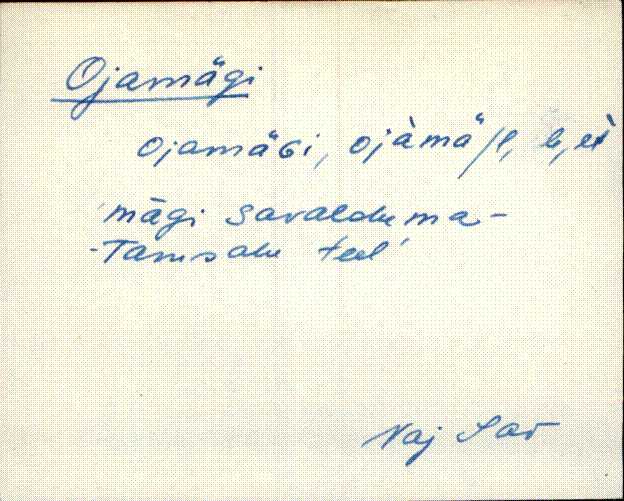 Ojamägi
ojamäGi, ojàmä/l, le, èt
'mägi Savalduma-
-Tamsalu teel'
Vaj Sav